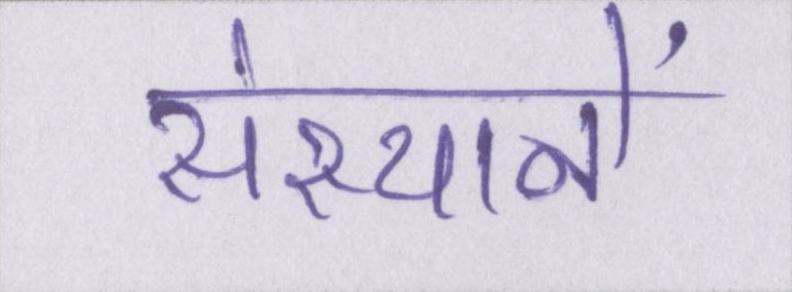 संस्थानों